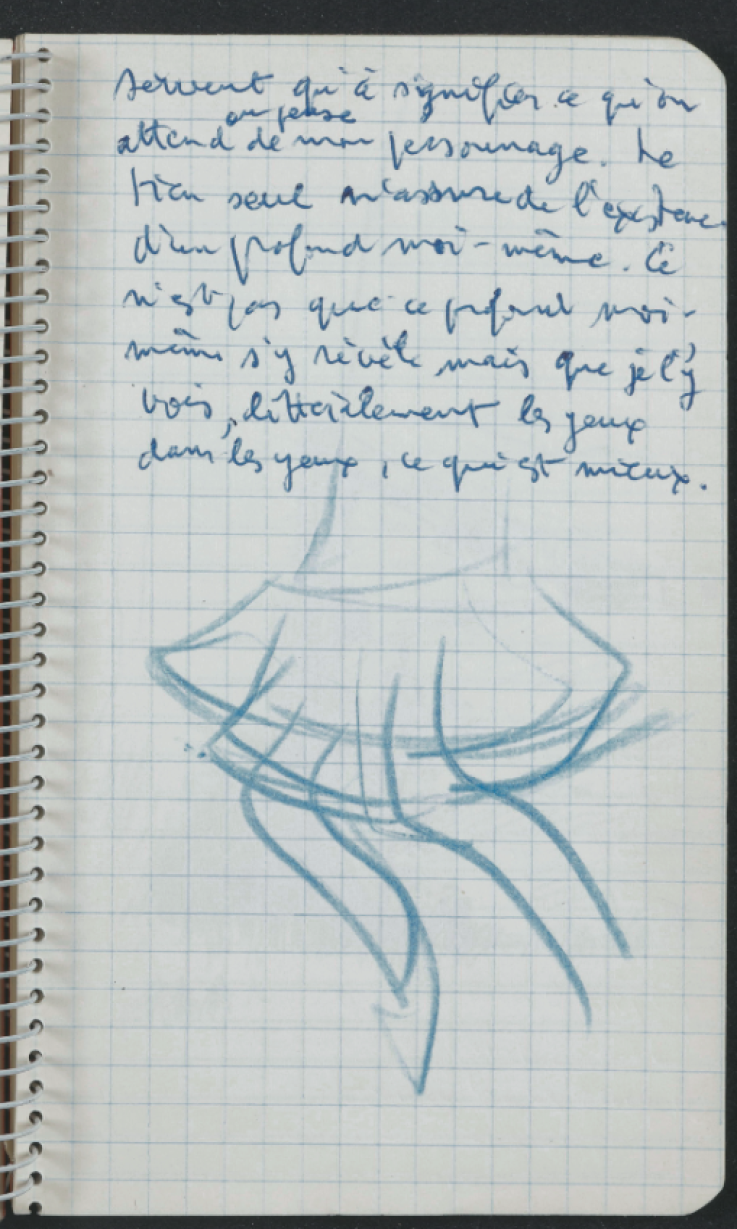 servent qu'à signifier ce qu'on
ou pense
attend de mon personnage. Le
tien seul m'assure de l'existence
d'un profond moi-même. Ce
n'est pas que ce profond moi-
même s'y révèle mais que je l'y
vois, littéralement les yeux
dans les yeux, ce qui est mieux.